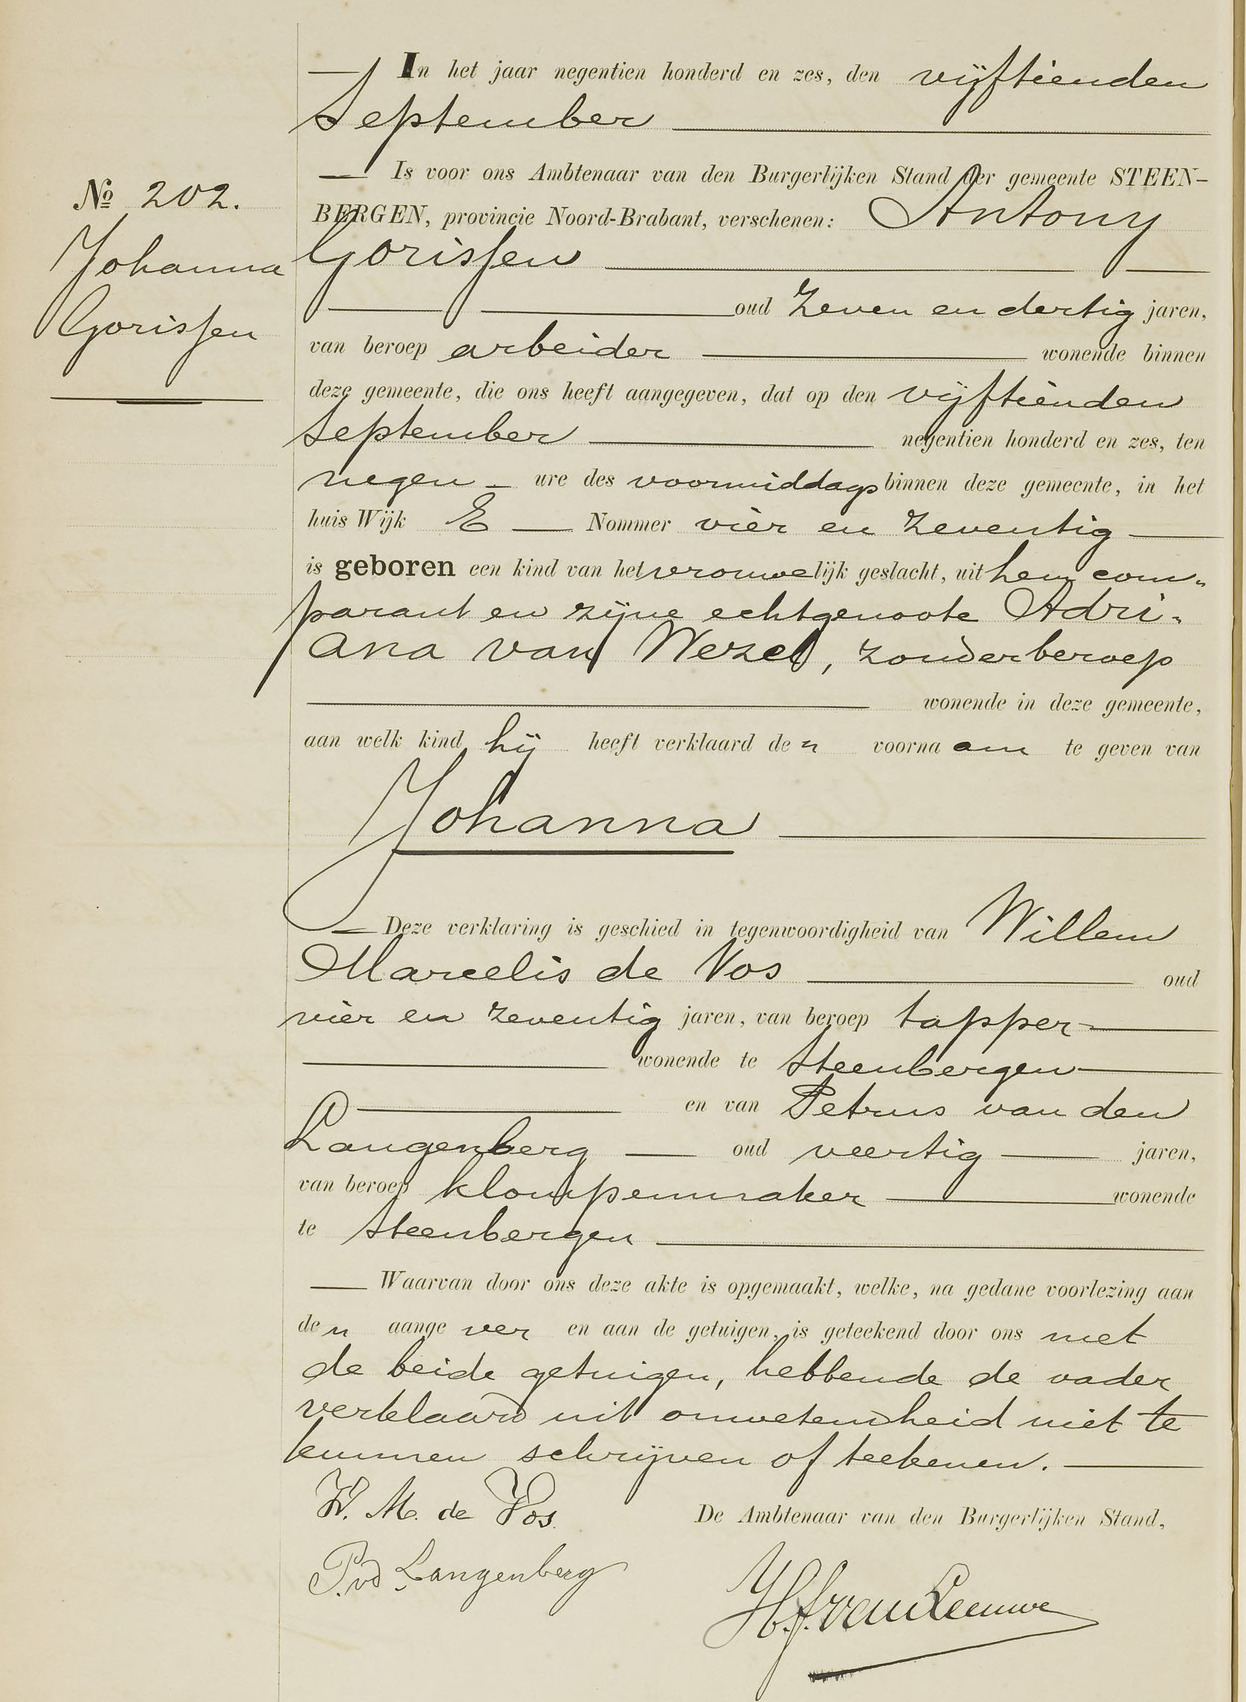 In het jaar negentien honderd en zes, den vijftienden
September
Is voor ons Ambtenaar van den Burgerlijken Stand der gemeente STEEN-
№ 202.
BERGEN, provincie Noord-Brabant, verschenen: Antony
Johanna
Gorissen
Gorissen
oud zeven en dertig jaren,
van beroep arbeider wonende binnen
deze gemeente, die ons heeft aangegeven, dat op den vijftienden
September negentien honderd en zes, ten
negen ure des voormiddags binnen deze gemeente, in het
huis Wijk E Nommer vier en zeventig
is geboren een kind van het vrouwelijk geslacht, uit hem com-
parant en zijne echtgenoote Adri-
ana van Wezel, zonder beroep
wonende in deze gemeente,
aan welk kind hij heeft verklaard den voornaam te geven van
Johanna
Deze verklaring is geschied in tegenwoordigheid van Willem
Marcelis de Vos oud
vier en zeventig jaren, van beroep tapper
wonende te Steenbergen
en van Petrus van den
Langenberg oud veertig jaren,
van beroep klompenmaker wonende
te Steenbergen
Waarvan door ons deze akte is opgemaakt, welke, na gedane voorlezing aan
den aangever en aan de getuigen, is geteekend door ons met
de beide getuigen, hebbende de vader
verklaard uit onwetendheid niet te
kunnen schrijven of teekenen.
W. M. de Vos
De Ambtenaar van den Burgerlijken Stand,
P. vd Langenberg
H.J. van Leeuwe